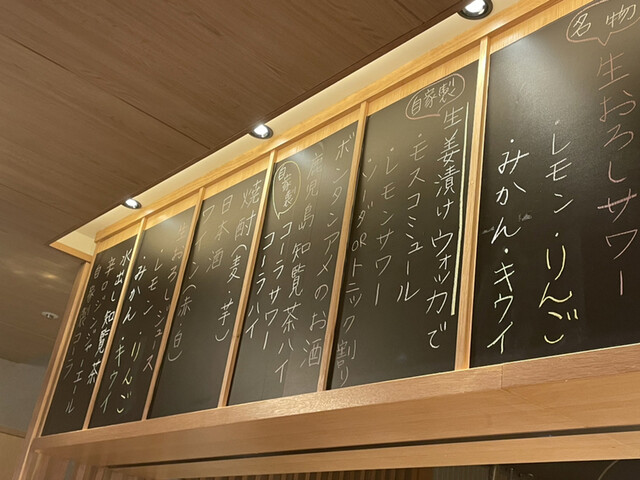 名物
生おろしサワー
・レモン・りんご
・みかん・キウイ
自家製
生姜漬けウォッカで
・モスコミュール
・レモンサワー
・ソーダorトニック割り
ボンタンアメのお酒
鹿児島知覧茶ハイ
自家製
コーラサワー
コーラハイ
焼酎(麦・芋)
日本酒
ワイン(赤・白)
生おろしジュース
レモン・りんご
・みかん・キウイ
水出し知覧茶
辛口ジンジャーエール
自家製コーラ